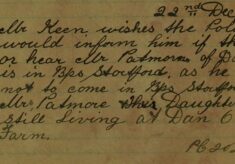 22nd Dec
Mr Keen wishes the Pol
would inform him if th
or hear Mr Patmore of D
is in Bps Stortford, as he
not to come in Bps Stortf
Mr Patmore this Daughter
still Living at Dan O
Farm.
PC 26